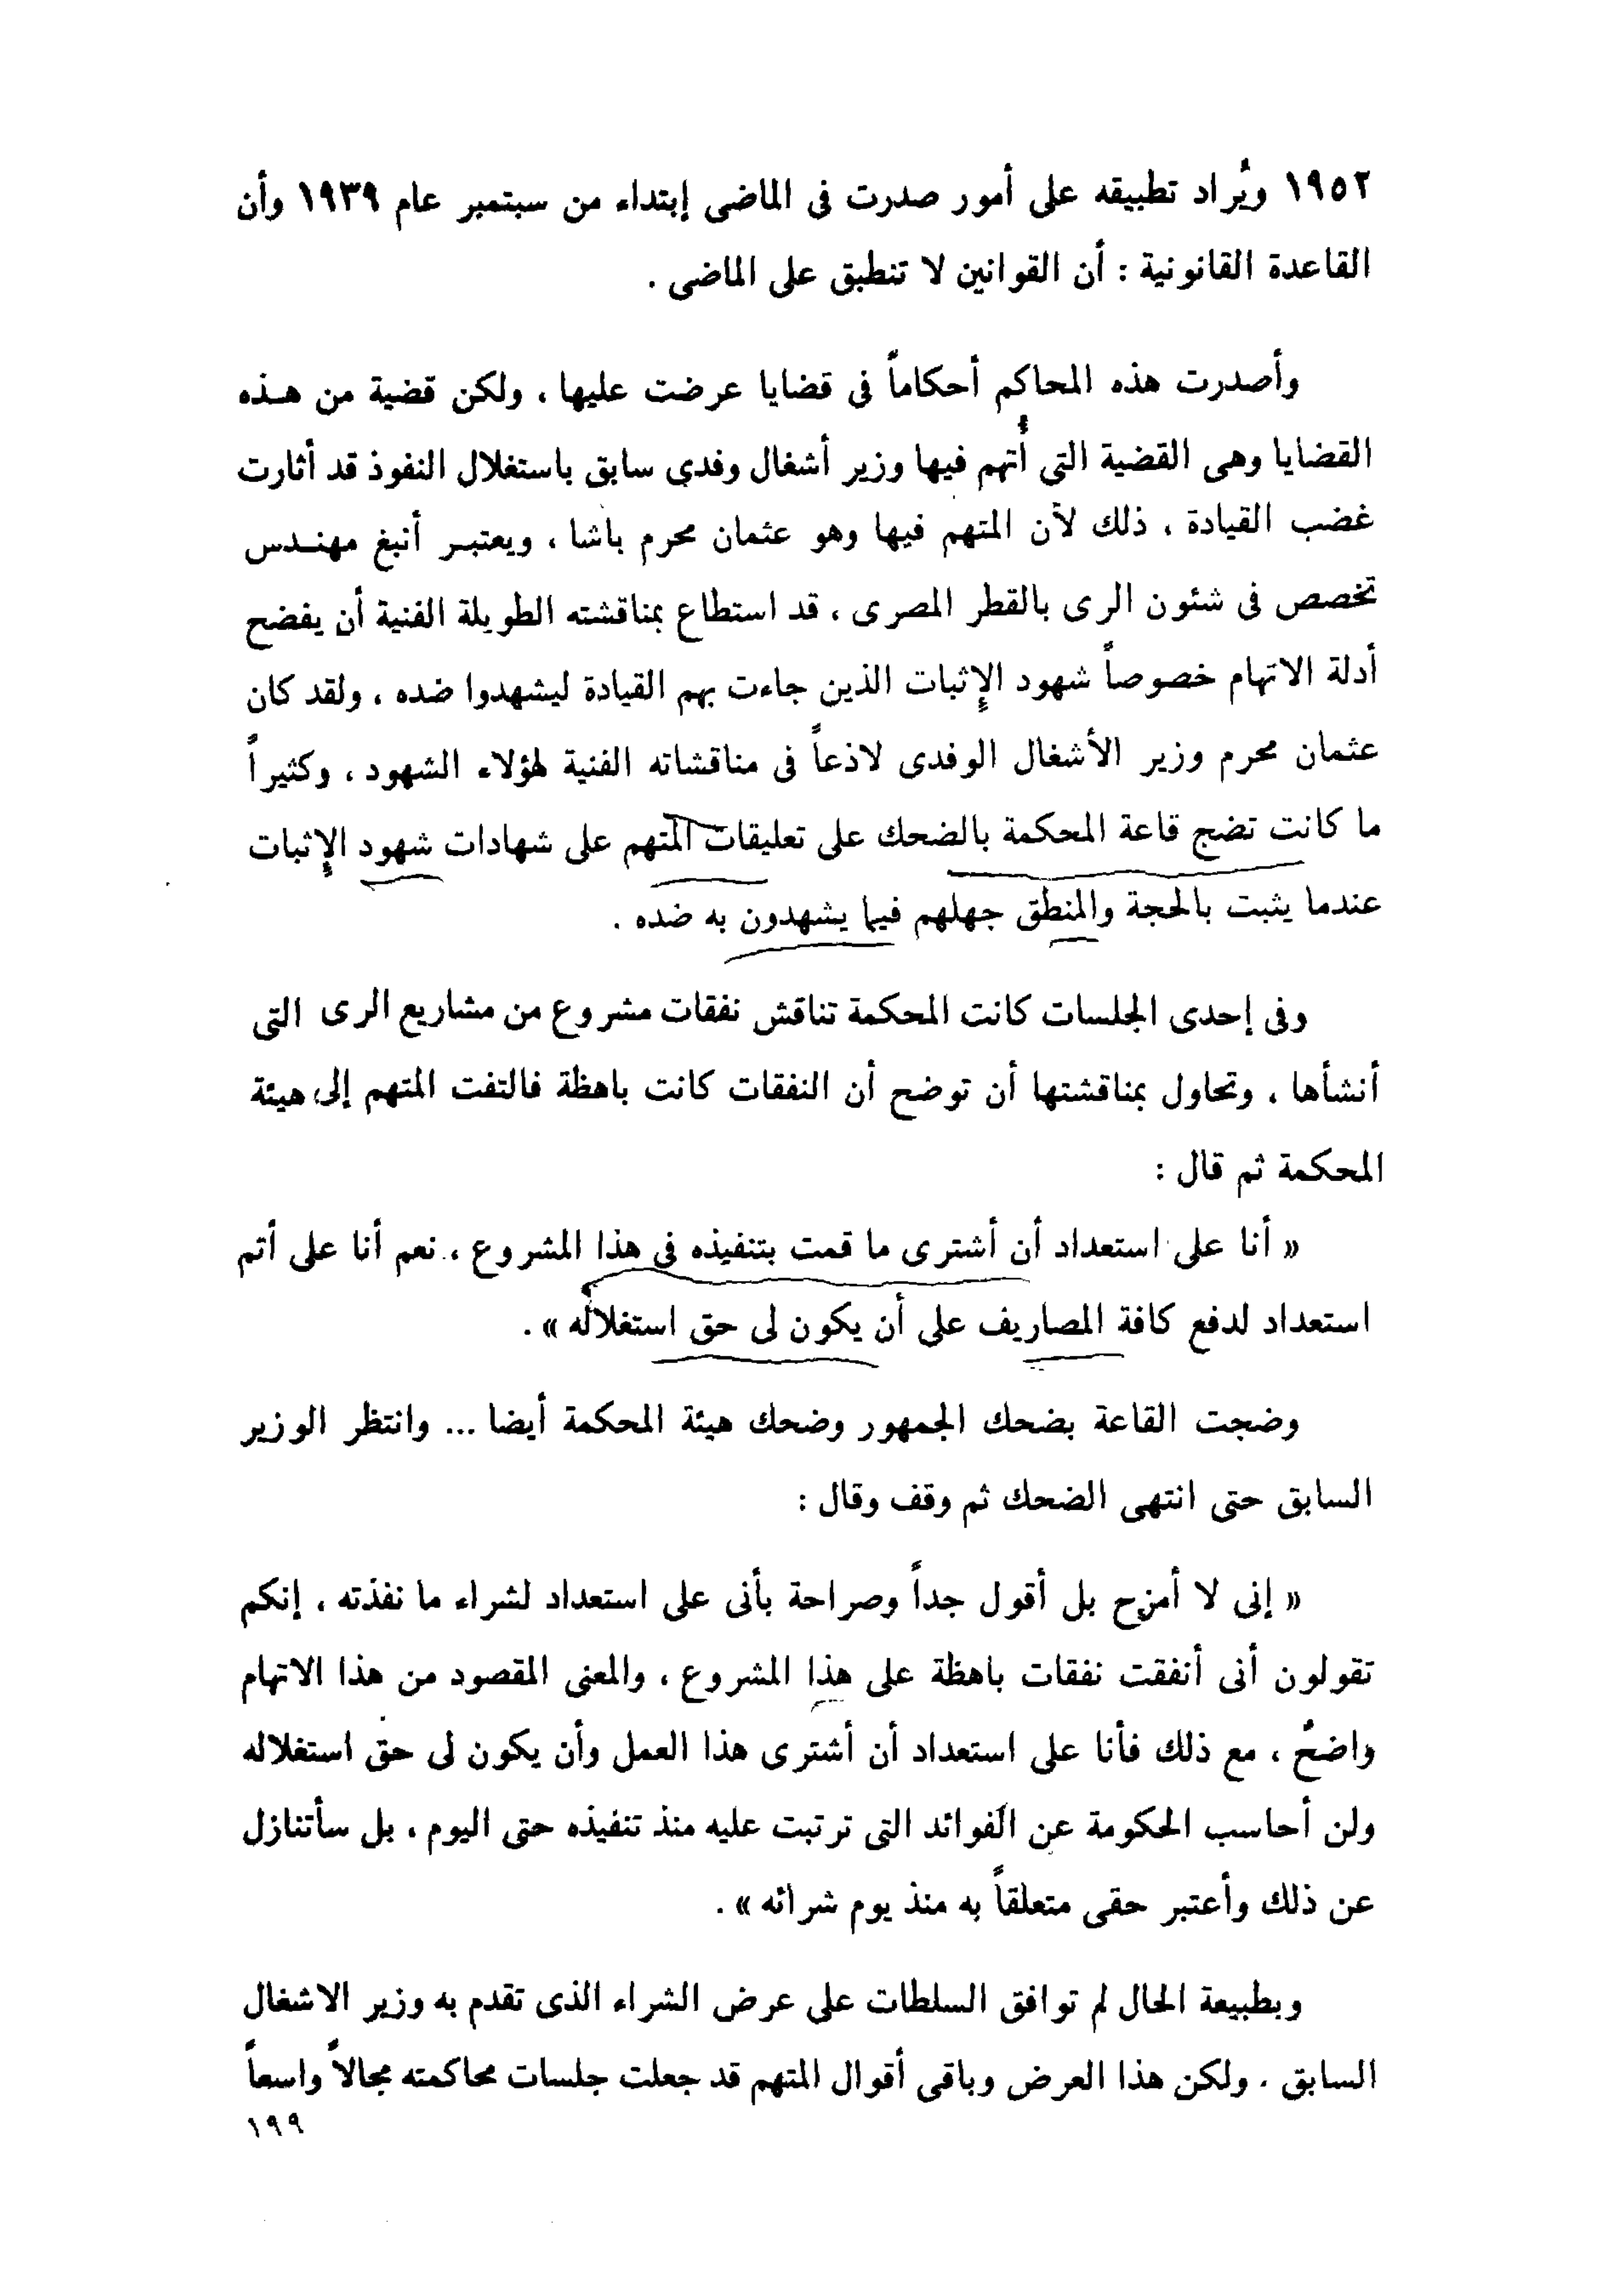 ١٩٥٢ ويُراد تطبيقه على أمور صدرت فى الماضى إبتداء من سبتمبر عام ١٩٣٩ وأن
القاعدة القانونية : أن القوانين لا تنطبق على الماضى .
وأصدرت هذه المحاكم أحكاماً فى قضايا عرضت عليها ، ولكن قضية من هـذه
القضايا وهى القضية التى أُتهم فيها وزير أشغال وفدى سابق باستغلال النفوذ قد أثارت
غضب القيادة ، ذلك لأن المتهم فيها وهو عثمان محرم باشا ، ويعتبـر أنبغ مهنـدس
تخصص فى شئون الرى بالقطر المصرى ، قد استطاع بمناقشته الطويلة الفنية أن يفضح
أدلة الاتهام خصوصاً شهود الإثبات الذين جاءت بهم القيادة ليشهدوا ضده ، ولقد كان
عثمان محرم وزير الأشغال الوفدى لاذعاً فى مناقشاته الفنية لهؤلاء الشهود ، وكثيراً
ما كانت تضج قاعة المحكمة بالضحك على تعليقات المتهم على شهادات شهود الإثبات
عندما يثبت بالحجة والمنطق جهلهم فيما يشهدون به ضده .
وفى إحدى الجلسات كانت المحكمة تناقش نفقات مشروع من مشاريع الرى التى
أنشأها ، وتحاول بمناقشتها أن توضح أن النفقات كانت باهظة فالتفت المتهم إلى هيئة
المحكمة ثم قال :
« أنا على استعداد أن أشترى ما قمت بتنفيذه فى هذا المشروع ، نعم أنا على أتم
استعداد لدفع كافة المصاريف على أن يكون لى حق استغلاله » .
وضجت القاعة بضحك الجمهور وضحك هيئة المحكمة أيضا ... وانتظر الوزير
السابق حتى انتهى الضحك ثم وقف وقال :
« إنى لا أمزح بل أقول جداً وصراحة بأنى على استعداد لشراء ما نفذته ، إنكم
تقولون أنى أنفقت نفقات باهظة على هذا المشروع ، والمعنى المقصود من هذا الاتهام
واضحُ ، مع ذلك فأنا على استعداد أن أشترى هذا العمل وأن يكون لى حق استغلاله
ولن أحاسب الحكومة عن الفوائد التى ترتبت عليه منذ تنفيذه حتى اليوم ، بل سأتنازل
عن ذلك وأعتبر حقى متعلقاً به منذ يوم شرائه » .
وبطبيعة الحال لم توافق السلطات على عرض الشراء الذى تقدم به وزير الاشغال
السابق . ولكن هذا العرض وباقى أقوال المتهم قد جعلت جلسات محاكمته مجالاً واسعاً
١٩٩